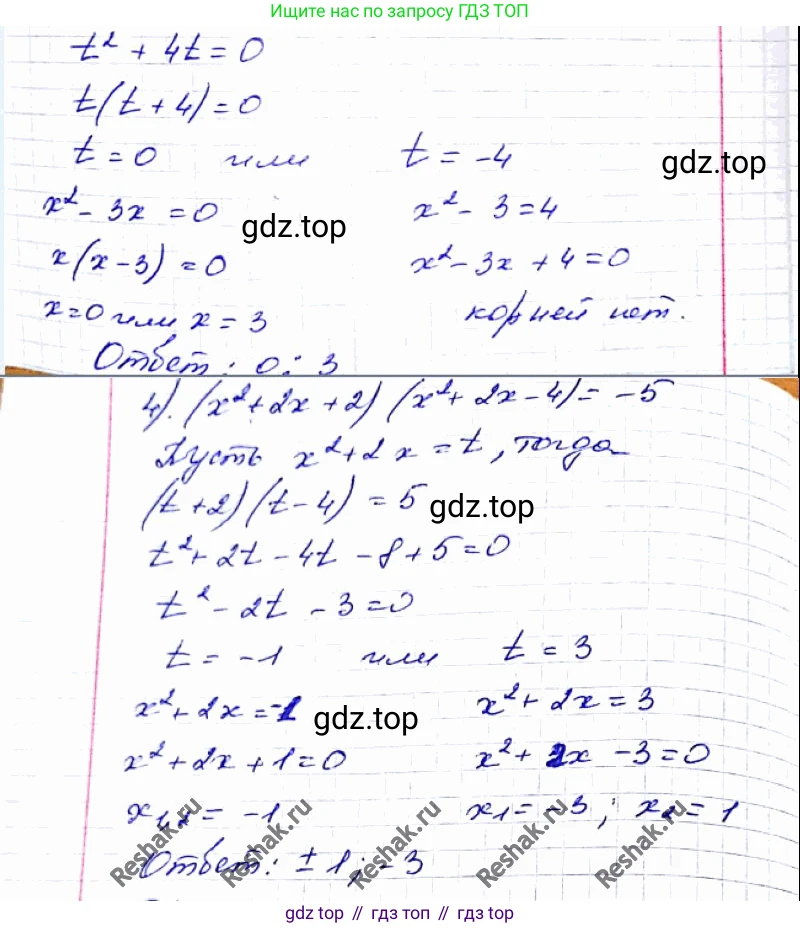 Ищите нас по запросу ГДЗ ТОП
t² + 4t = 0
t(t + 4) = 0
t = 0 или t = -4
gdz.top
x² - 3x = 0 x² - 3 = 4
gdz.top
x(x - 3) = 0 x² - 3x + 4 = 0
x = 0 или x = 3 корней нет.
Ответ: 0; 3
4). (x² + 2x + 2) (x² + 2x - 4) = -5
Пусть x² + 2x = t, тогда
(t + 2) (t - 4) = 5
gdz.top
t² + 2t - 4t - 8 + 5 = 0
t² - 2t - 3 = 0
t = -1 или t = 3
x² + 2x = -1 x² + 2x = 3
gdz.top
x² + 2x + 1 = 0 x² + 2x - 3 = 0
x₁,₂ = -1 x₁ = -3; x₂ = 1
Ответ: ± 1; -3
Reshak.ru
Reshak.ru
Reshak.ru
Reshak.ru
Reshak.ru
gdz.top // гдз топ // gdz.top